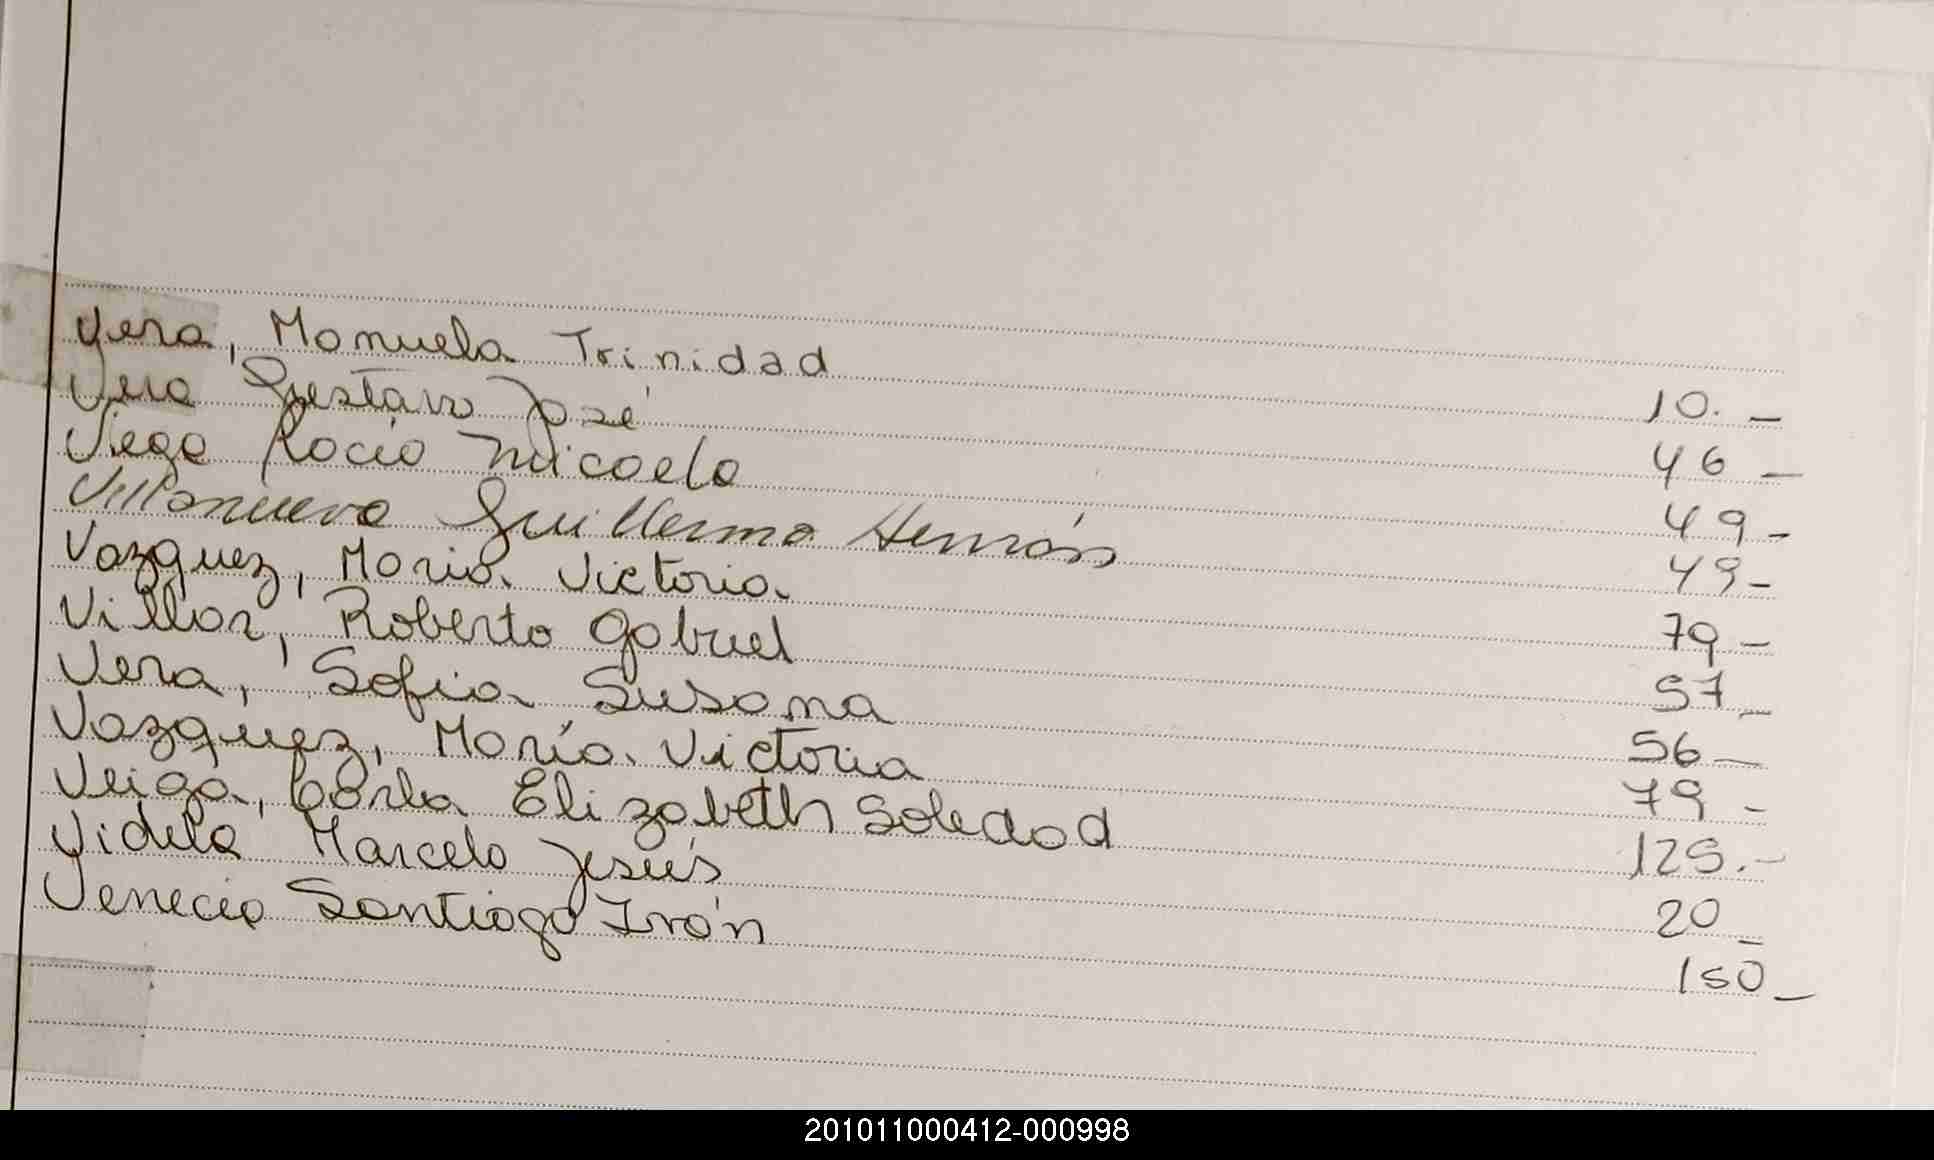 Vera, Manuela Trinidad 10.-
Vera Gustavo José 46-
Vega Rocio Micaela 49-
Villanueva Guillermo Hernán 49-
Vazquez, Maria Victoria 79-
Villar, Roberto Gabriel 57-
Vera, Sofia Susana 56-
Vazquez, María Victoria 79-
Veiga, Carla Elizabeth Soledad 125.-
Videla Marcelo Jesús 20-
Venecia Santiago Iván 150-
201011000412-000998